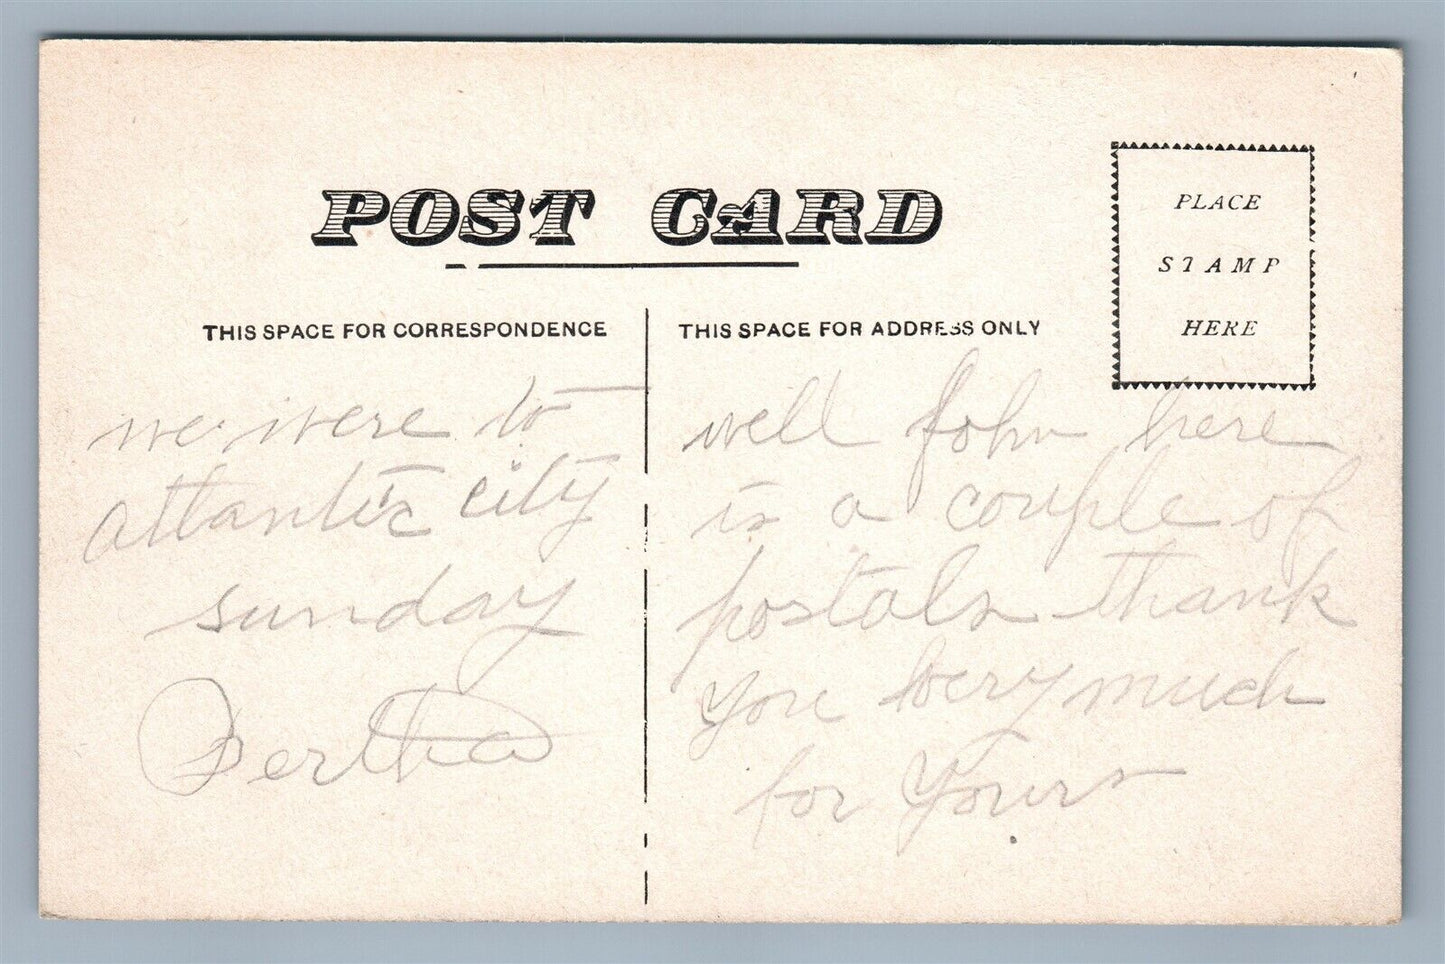 POST CARD
PLACE
STAMP
HERE
THIS SPACE FOR CORRESPONDENCE
we were to
atlantic city
sunday
Bertha
THIS SPACE FOR ADDRESS ONLY
well John here
is a couple of
postals thank
you very much
for yours